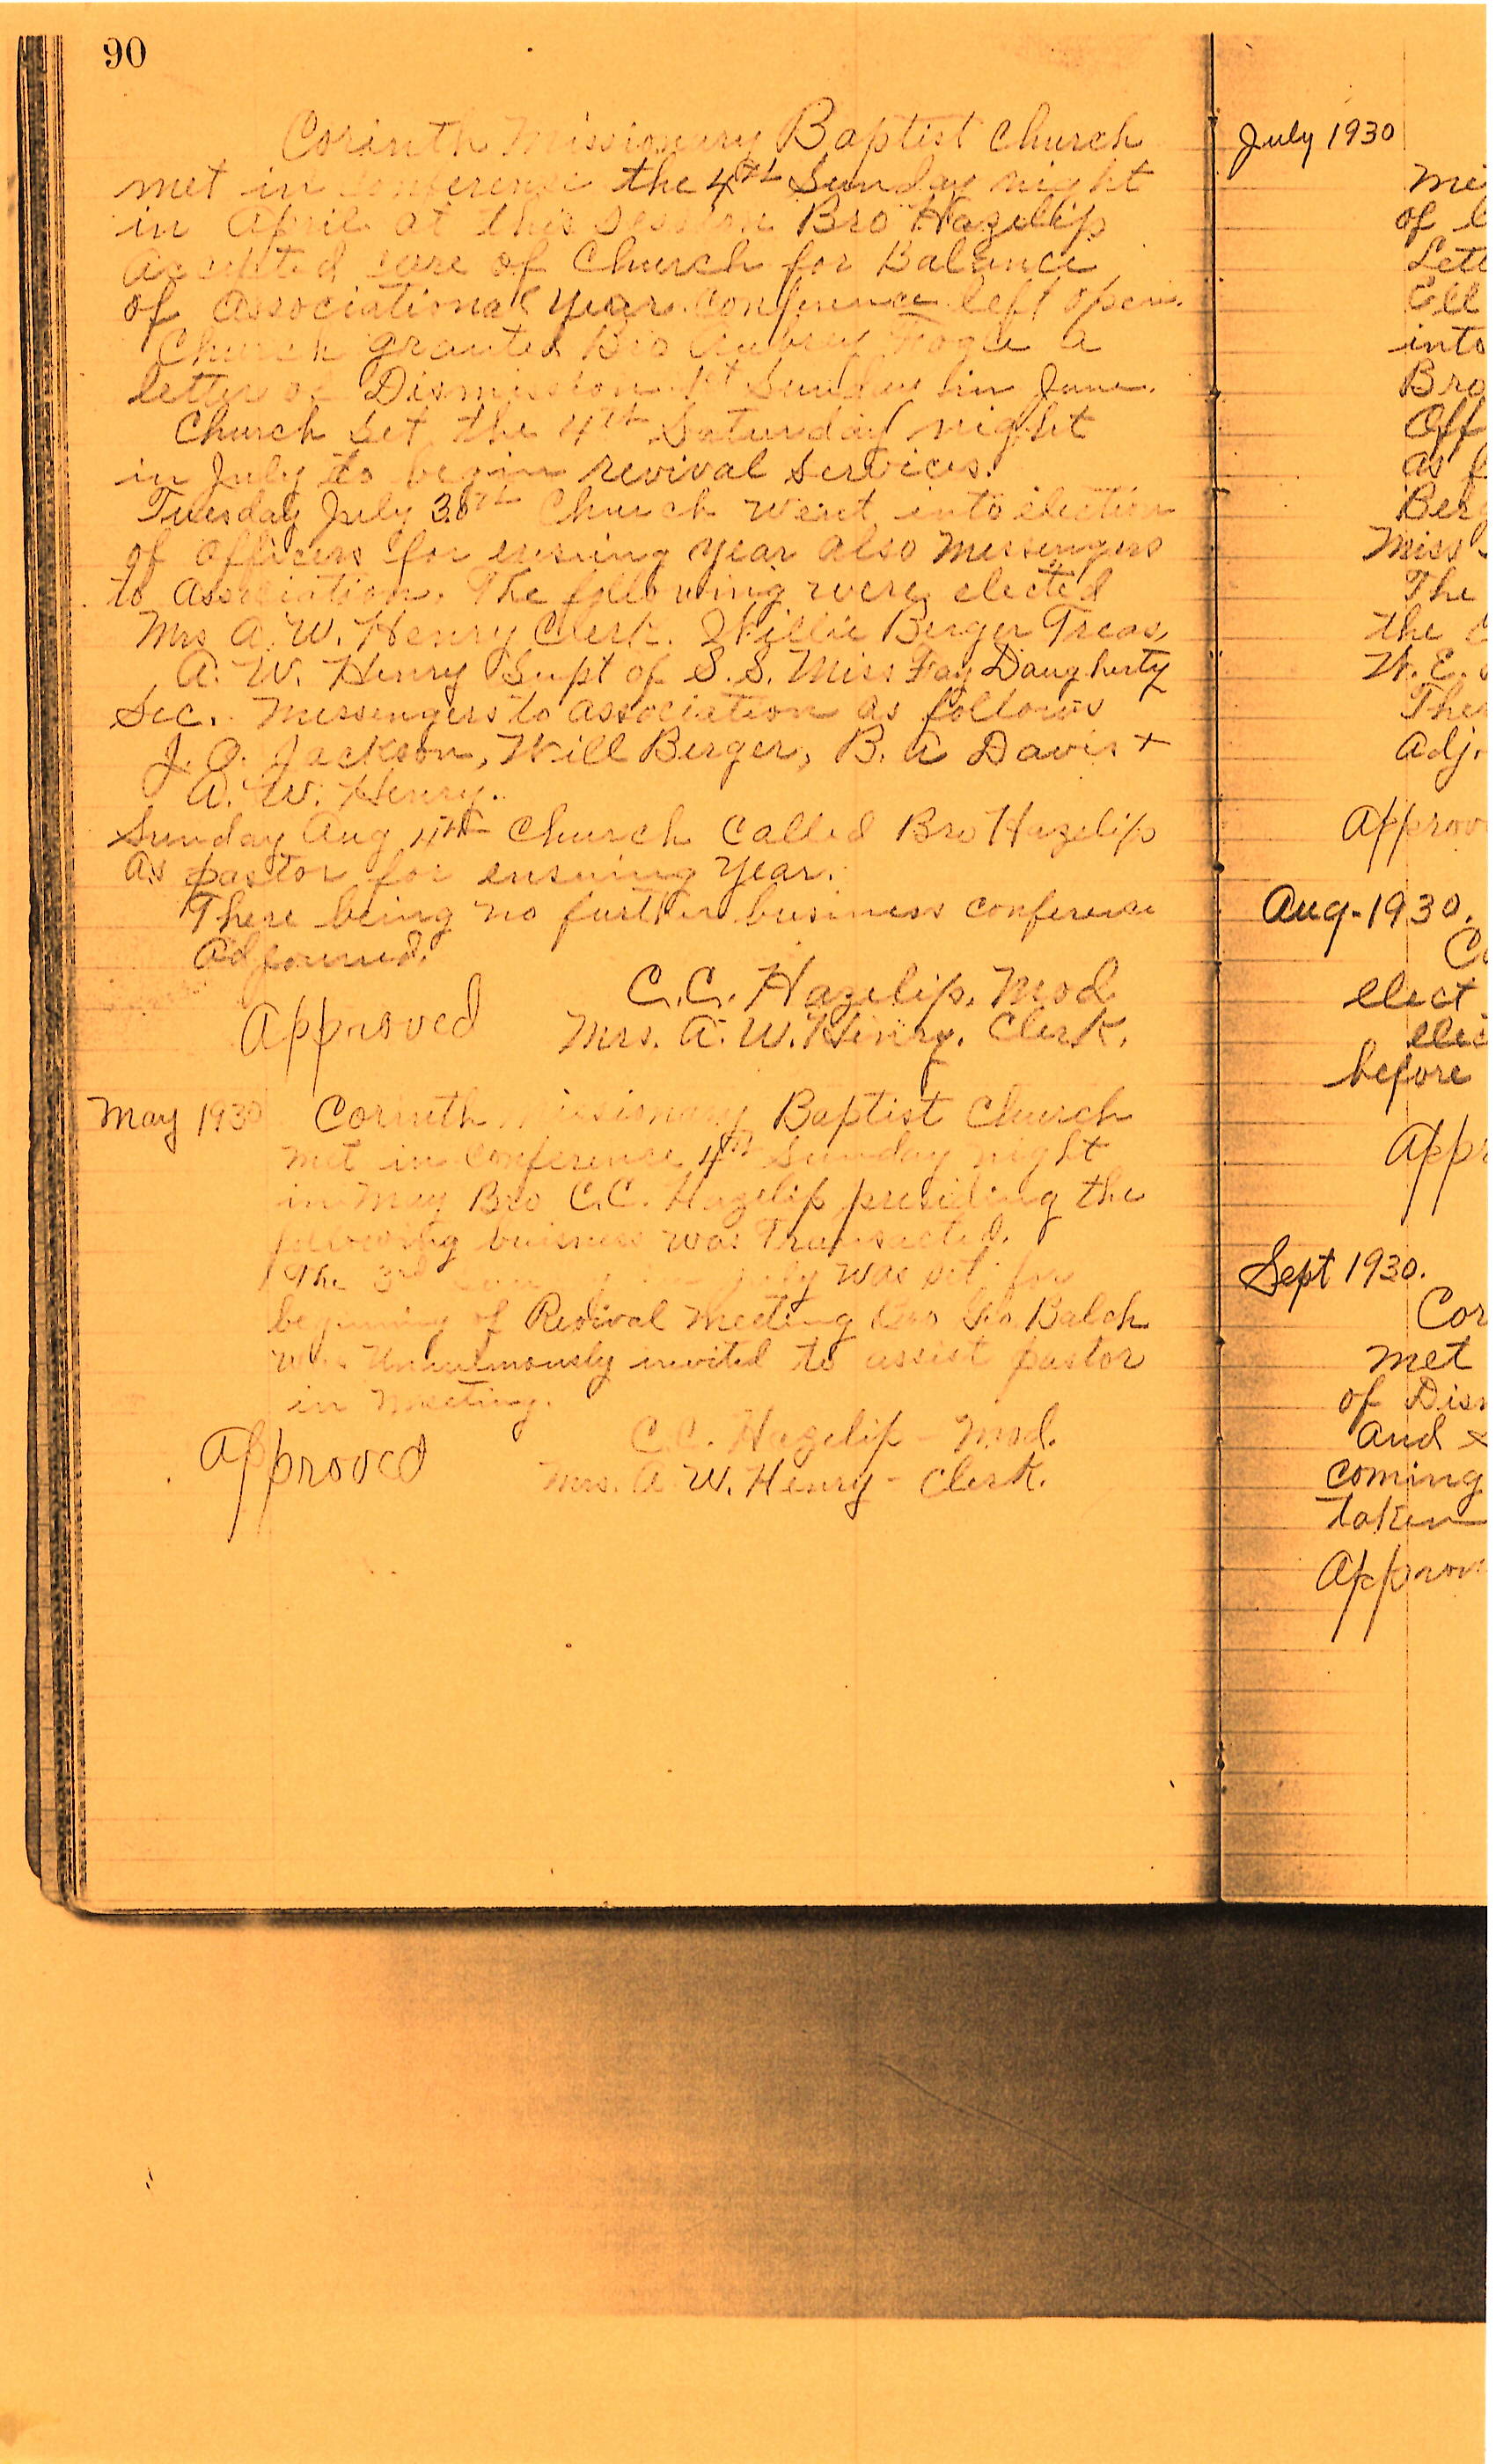 90
Corinth Missionary Baptist Church
met in conference the 4th Sunday night
in April at this session Bro Hazelip
accepted care of Church for Balance
of associational year. conference left open.
Church granted Bro Aubrey a
letter of Dismission 1st Sunday in June.
Church set the 4th Saturday night
in July to begin revival services.
Tuesday July 30th Church went into election
of officers for ensuing year also messengers
to association. The following were elected
Mrs A. W. Henry Clerk. Willie Berger Treas,
A. W. Henry Supt of S. S. Miss Fay Daugherty
Sec. Messengers to association as follows
J. O. Jackson, Will Berger, B. A Davis +
A. W. Henry.
Sunday Aug 4th Church called Bro Hazelip
as pastor for ensuing year.
There being no further business conference
adjourned.
C. C. Hazelip. Mod
Approved Mrs. A. W. Henry. Clerk.
May 1930 Corinth Missionary Baptist Church
met in conference 4th Sunday night
in May Bro C.C. Hazelip presiding the
following buisness was Transacted.
The 3rd July was set for
beginning of Revival meeting Bro Geo. Balch
was Unanimously invited to assist pastor
in meeting.
C.C. Hazelip - Mod.
Approved Mrs. A. W. Henry - Clerk.
July 1930
of
into
Bro
as
Miss
The
the
W. E.
Adj.
Approv
Aug - 1930.
elect
before
Appr
Sept 1930.
Cor
met
of Dis
and
coming
taken
Approv